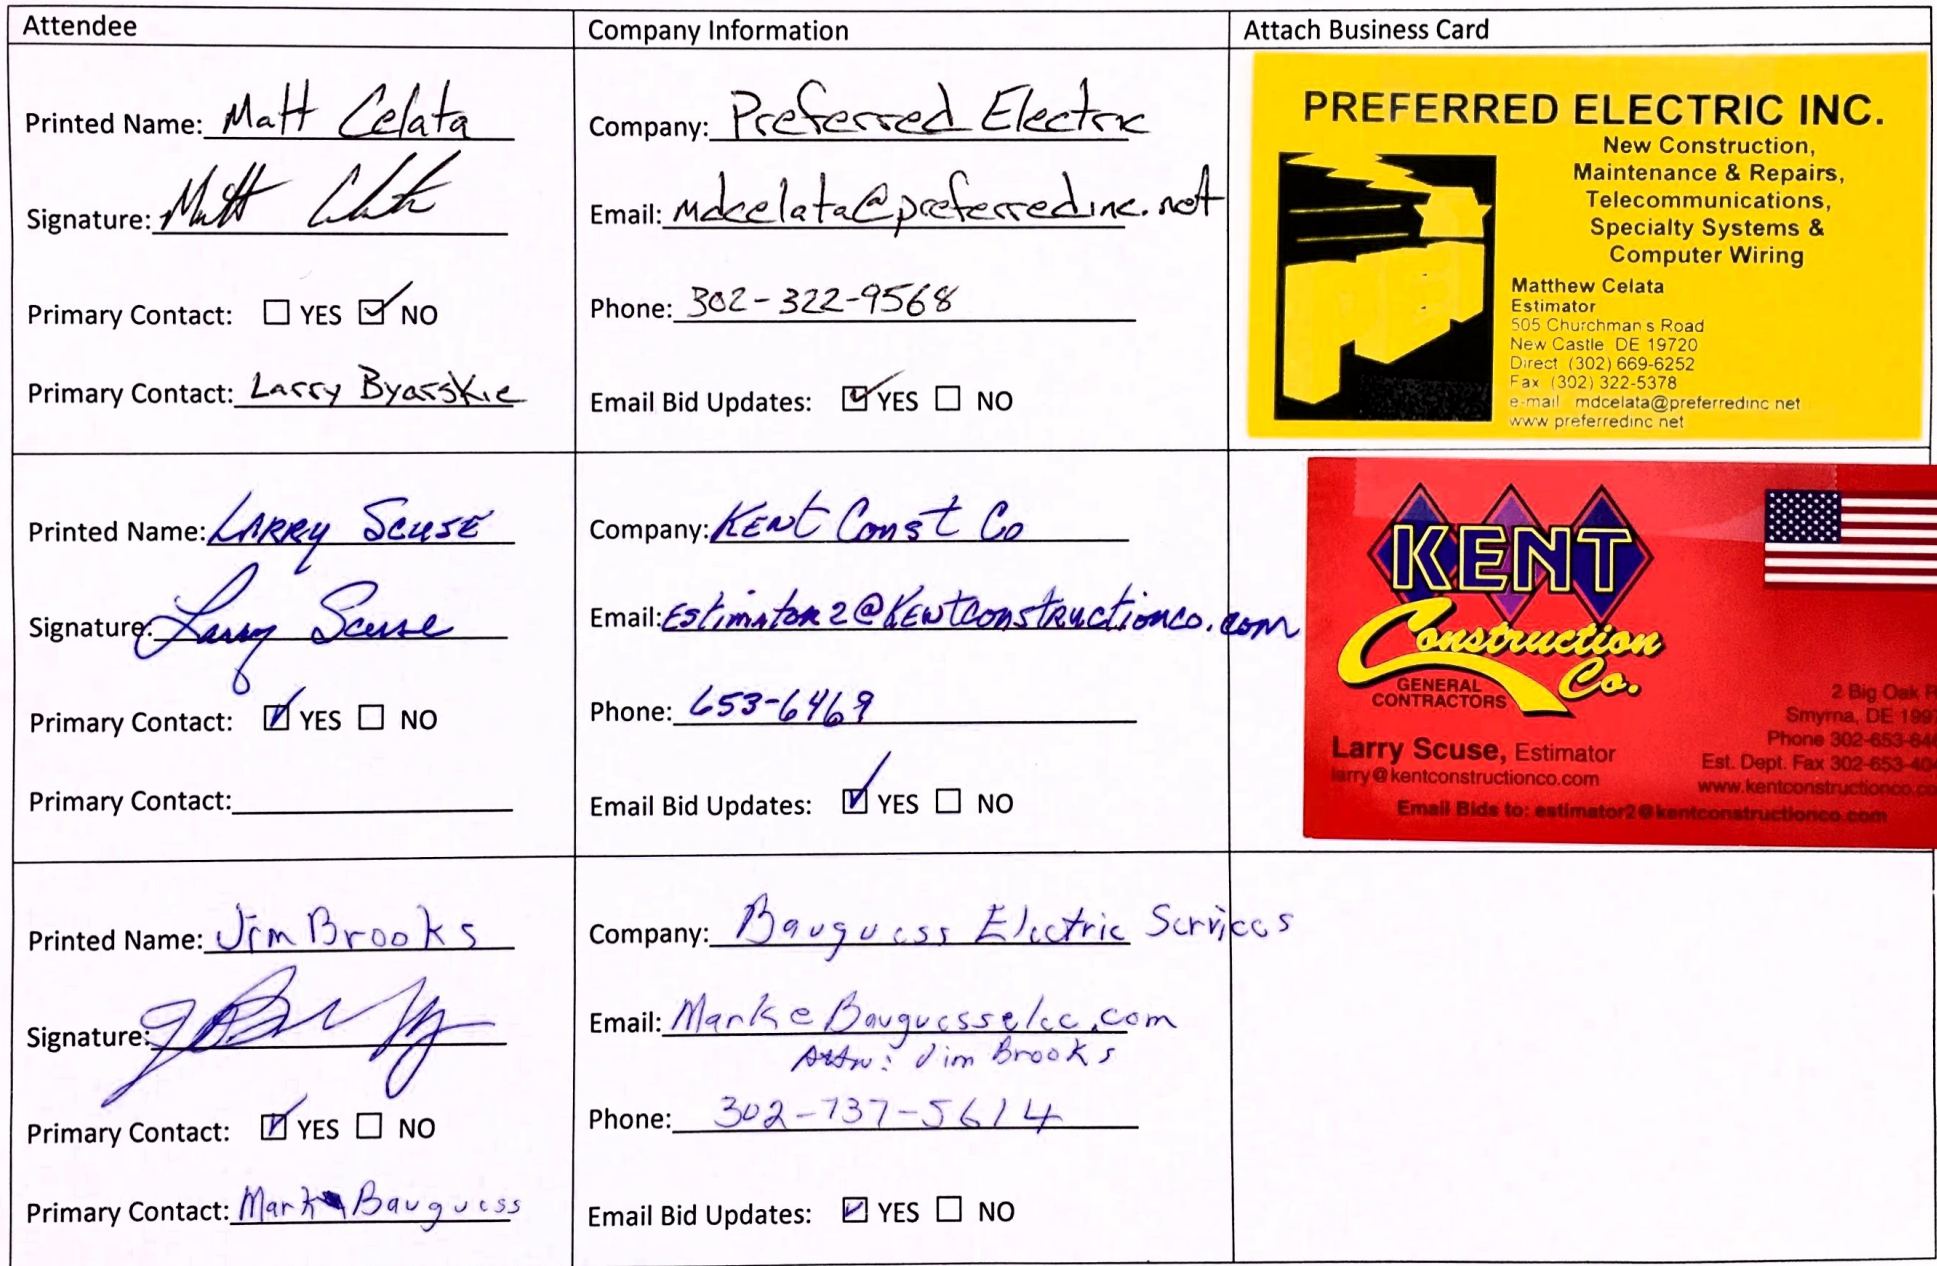 Attendee
Company Information
Attach Business Card
Printed Name: Matt Celata
Signature: Matt Celata
Primary Contact: YES NO
Primary Contact: Larry Byarskie
Company: Preferred Electric
Email: mdcelata@preferredinc.net
Phone: 302-322-9568
Email Bid Updates: YES NO
PREFERRED ELECTRIC INC.
New Construction,
Maintenance & Repairs,
Telecommunications,
Specialty Systems &
Computer Wiring
Matthew Celata
Estimator
505 Churchman s Road
New Castle DE 19720
Direct (302) 669-6252
Fax (302) 322-5378
e-mail mdcelata@preferredinc net
www preferredinc net
Printed Name: LARRY SCUSE
Signature: Larry Scuse
Primary Contact: YES NO
Primary Contact:
Company: KENT Const Co
Email: Estimator2@Kentconstructionco.com
Phone: 653-6469
Email Bid Updates: YES NO
KENT
Construction
Co.
GENERAL
CONTRACTORS
2 Big Oak R
Smyrna, DE 1997
Phone 302-653-646
Est. Dept. Fax 302-653-404
www.kentconstructionco.co
Larry Scuse, Estimator
larry@kentconstructionco.com
Email Bids to: estimator2@kentconstructionco.com
Printed Name: Jim Brooks
Signature:
Primary Contact: YES NO
Primary Contact: Mark Bauguess
Company: Bauguess Electric Services
Email: Mark@Bauguesselec.com
Attn: Jim Brooks
Phone: 302-737-5614
Email Bid Updates: YES NO